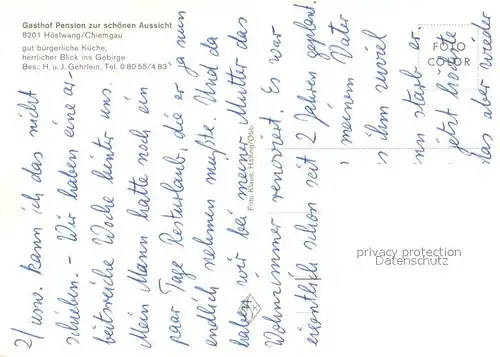 Gasthof Pension zur schönen Aussicht
8201 Höslwang/Chiemgau
gut bürgerliche Küche,
herrlicher Blick ins Gebirge
Bes.: H. u. J. Gehrlein, Tel. 0 80 55/4 83
FOTO
COLOR
Foto Klaus, Halfing/Obb.
2/ usw. kann ich das nicht
schieben. - Wir haben eine ar-
beitsreiche Woche hinter uns.
Mein Mann hatte noch ein
paar Tage Resturlaub, die er ja nun
endlich nehmen mußte. Und da
haben wir bei meiner Mutter das
Wohnzimmer renoviert. Es war
eigentlich schon seit 2 Jahren geplant.
meinem Vater
s ihm zuviel
nn starb er.
jetzt hörte
das aber wieder
privacy protection
Datenschutz